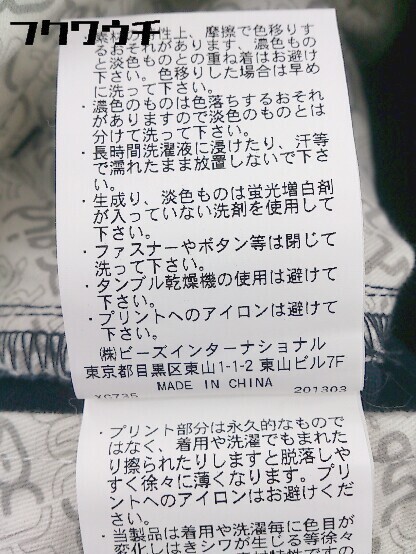 フクワウチ
性上、摩擦で色移りす
るおそれがあります、濃色もの
と淡色ものとの重ね着はお避け
下さい。色移りした場合は早め
に洗って下さい。
・濃色のものは色落ちするおそれ
がありますので淡色のものとは
分けて洗って下さい。
・長時間洗濯液に浸けたり、汗等
で濡れたまま放置しないで下さ
い。
・生成り、淡色ものは蛍光増白剤
が入っていない洗剤を使用して
下さい。
・ファスナーやボタン等は閉じて
洗って下さい。
・タンブル乾燥機の使用は避けて
下さい。
・プリントへのアイロンは避けて
下さい。
㈱ビーズインターナショナル
東京都目黒区東山1-1-2 東山ビル7F
MADE IN CHINA
201303
・プリント部分は永久的なもので
はなく、着用や洗濯でもまれた
り擦られたりしますと脱落しや
すく徐々に薄くなります。プリ
ントへのアイロンはお避けくだ
さい。
・当製品は着用や洗濯毎に色目が
変化しはきシワが生じる等徐々